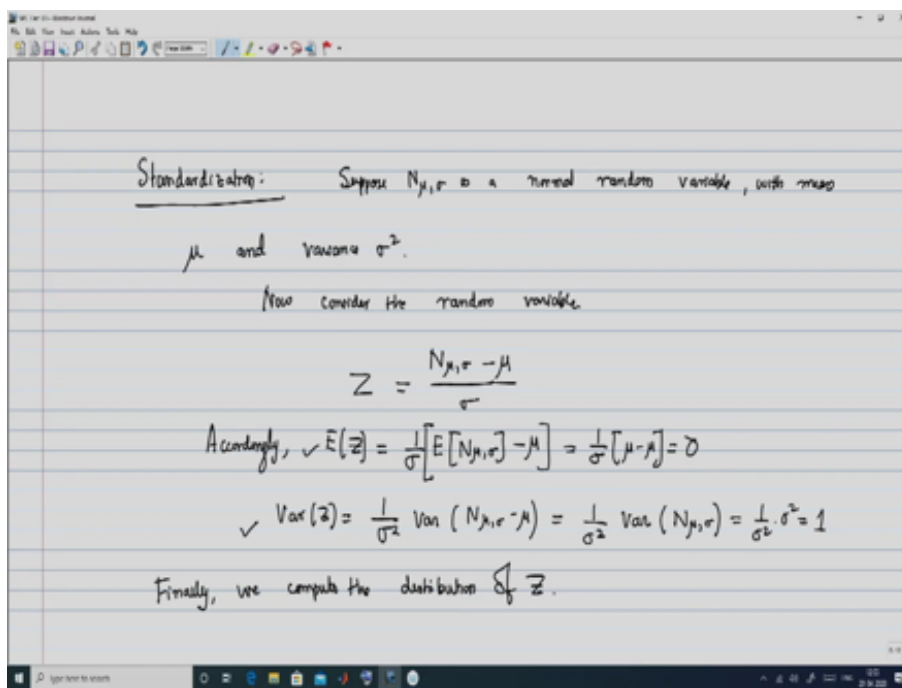 File Edit View Insert Actions Tools Help
Standardization: Suppose N_{μ,σ} is a normal random variable, with mean
μ and variance σ².
Now consider the random variable
Z = \frac{N_{μ,σ} - μ}{σ}
Accordingly, ✓ E(Z) = \frac{1}{σ}[E[N_{μ,σ}] - μ] = \frac{1}{σ}[μ-μ] = 0
✓ Var(Z) = \frac{1}{σ²} Var (N_{μ,σ} - μ) = \frac{1}{σ²} Var (N_{μ,σ}) = \frac{1}{σ²} · σ² = 1
Finally, we compute the distribution of Z.
Type here to search